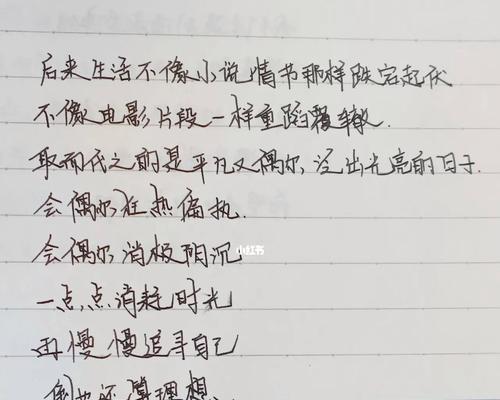 后来生活不像小说情节那样跌宕起伏
不像电影片段一样重蹈覆辙.
取而代之的是平凡又偶尔泛出光亮的日子.
会偶尔狂热偏执.
会偶尔消极阴沉
小红书
一点点消耗时光
再慢慢追寻自己
倒也还算理想.